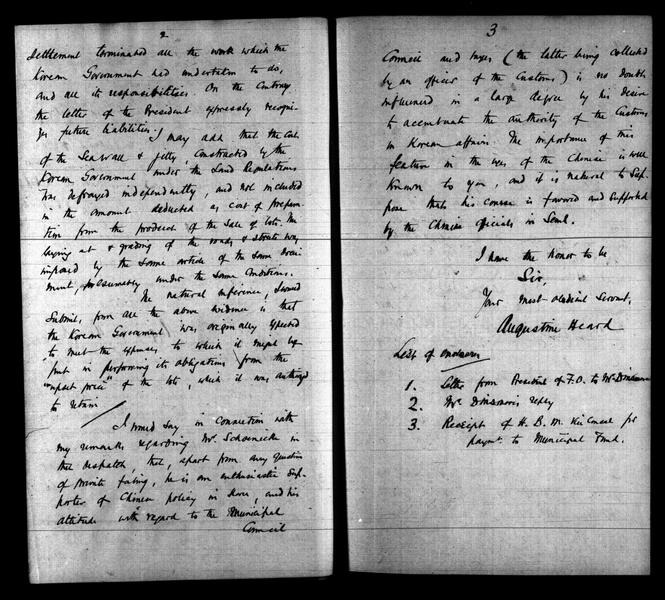 2
Settlement terminated all the work which the
Korean Government had undertaken to do,
and all its responsibilities. On the Contrary
the letter of the President expressly recogni-
zes future liabilities. I may add that the Cost
of the Seawall & jetty, Constructed by the
Korean Government under the Land Regulations
was defrayed independently, and not included
in the amount deducted as cost of prepara-
tion from the produce of the Sale of lots. The
laying out & grading of the roads & streets was
imposed by the Same article of the Same docu-
ment, presumably under the Same Conditions.
The natural inference, I would
Submit, from all the above evidence is that
the Korean Government was originally expected
to meet the expenses to which it might be
put in performing its obligations from the
"upset price" of the lots, which it was authorized
to retain
I would Say in Connection with
my remarks regarding Mr. Schoenicke in
this despatch, that, apart from any question
of private feeling, he is an enthusiastic Sup-
porter of Chinese policy in Korea, and his
attitude with regard to the Municipal
Council
3
Council and taxes (the latter being collected
by an officer of the Customs) is no doubt
influenced in a large degree by his desire
to accentuate the authority of the Customs
in Korean affairs. The importance of this
feature in the eyes of the Chinese is well
known to you, and it is natural to Sup-
pose that his course is favored and Supported
by the Chinese officials in Seoul.
I have the honor to be
Sir,
Your most obedient Servant,
Augustine Heard
List of enclosures
1. Letter from President of F.O. to Mr Dinsmore
2. Mr Dinsmore's reply
3. Receipt of H. B. M. Vice Consul for
paymt. to Municipal Fund.